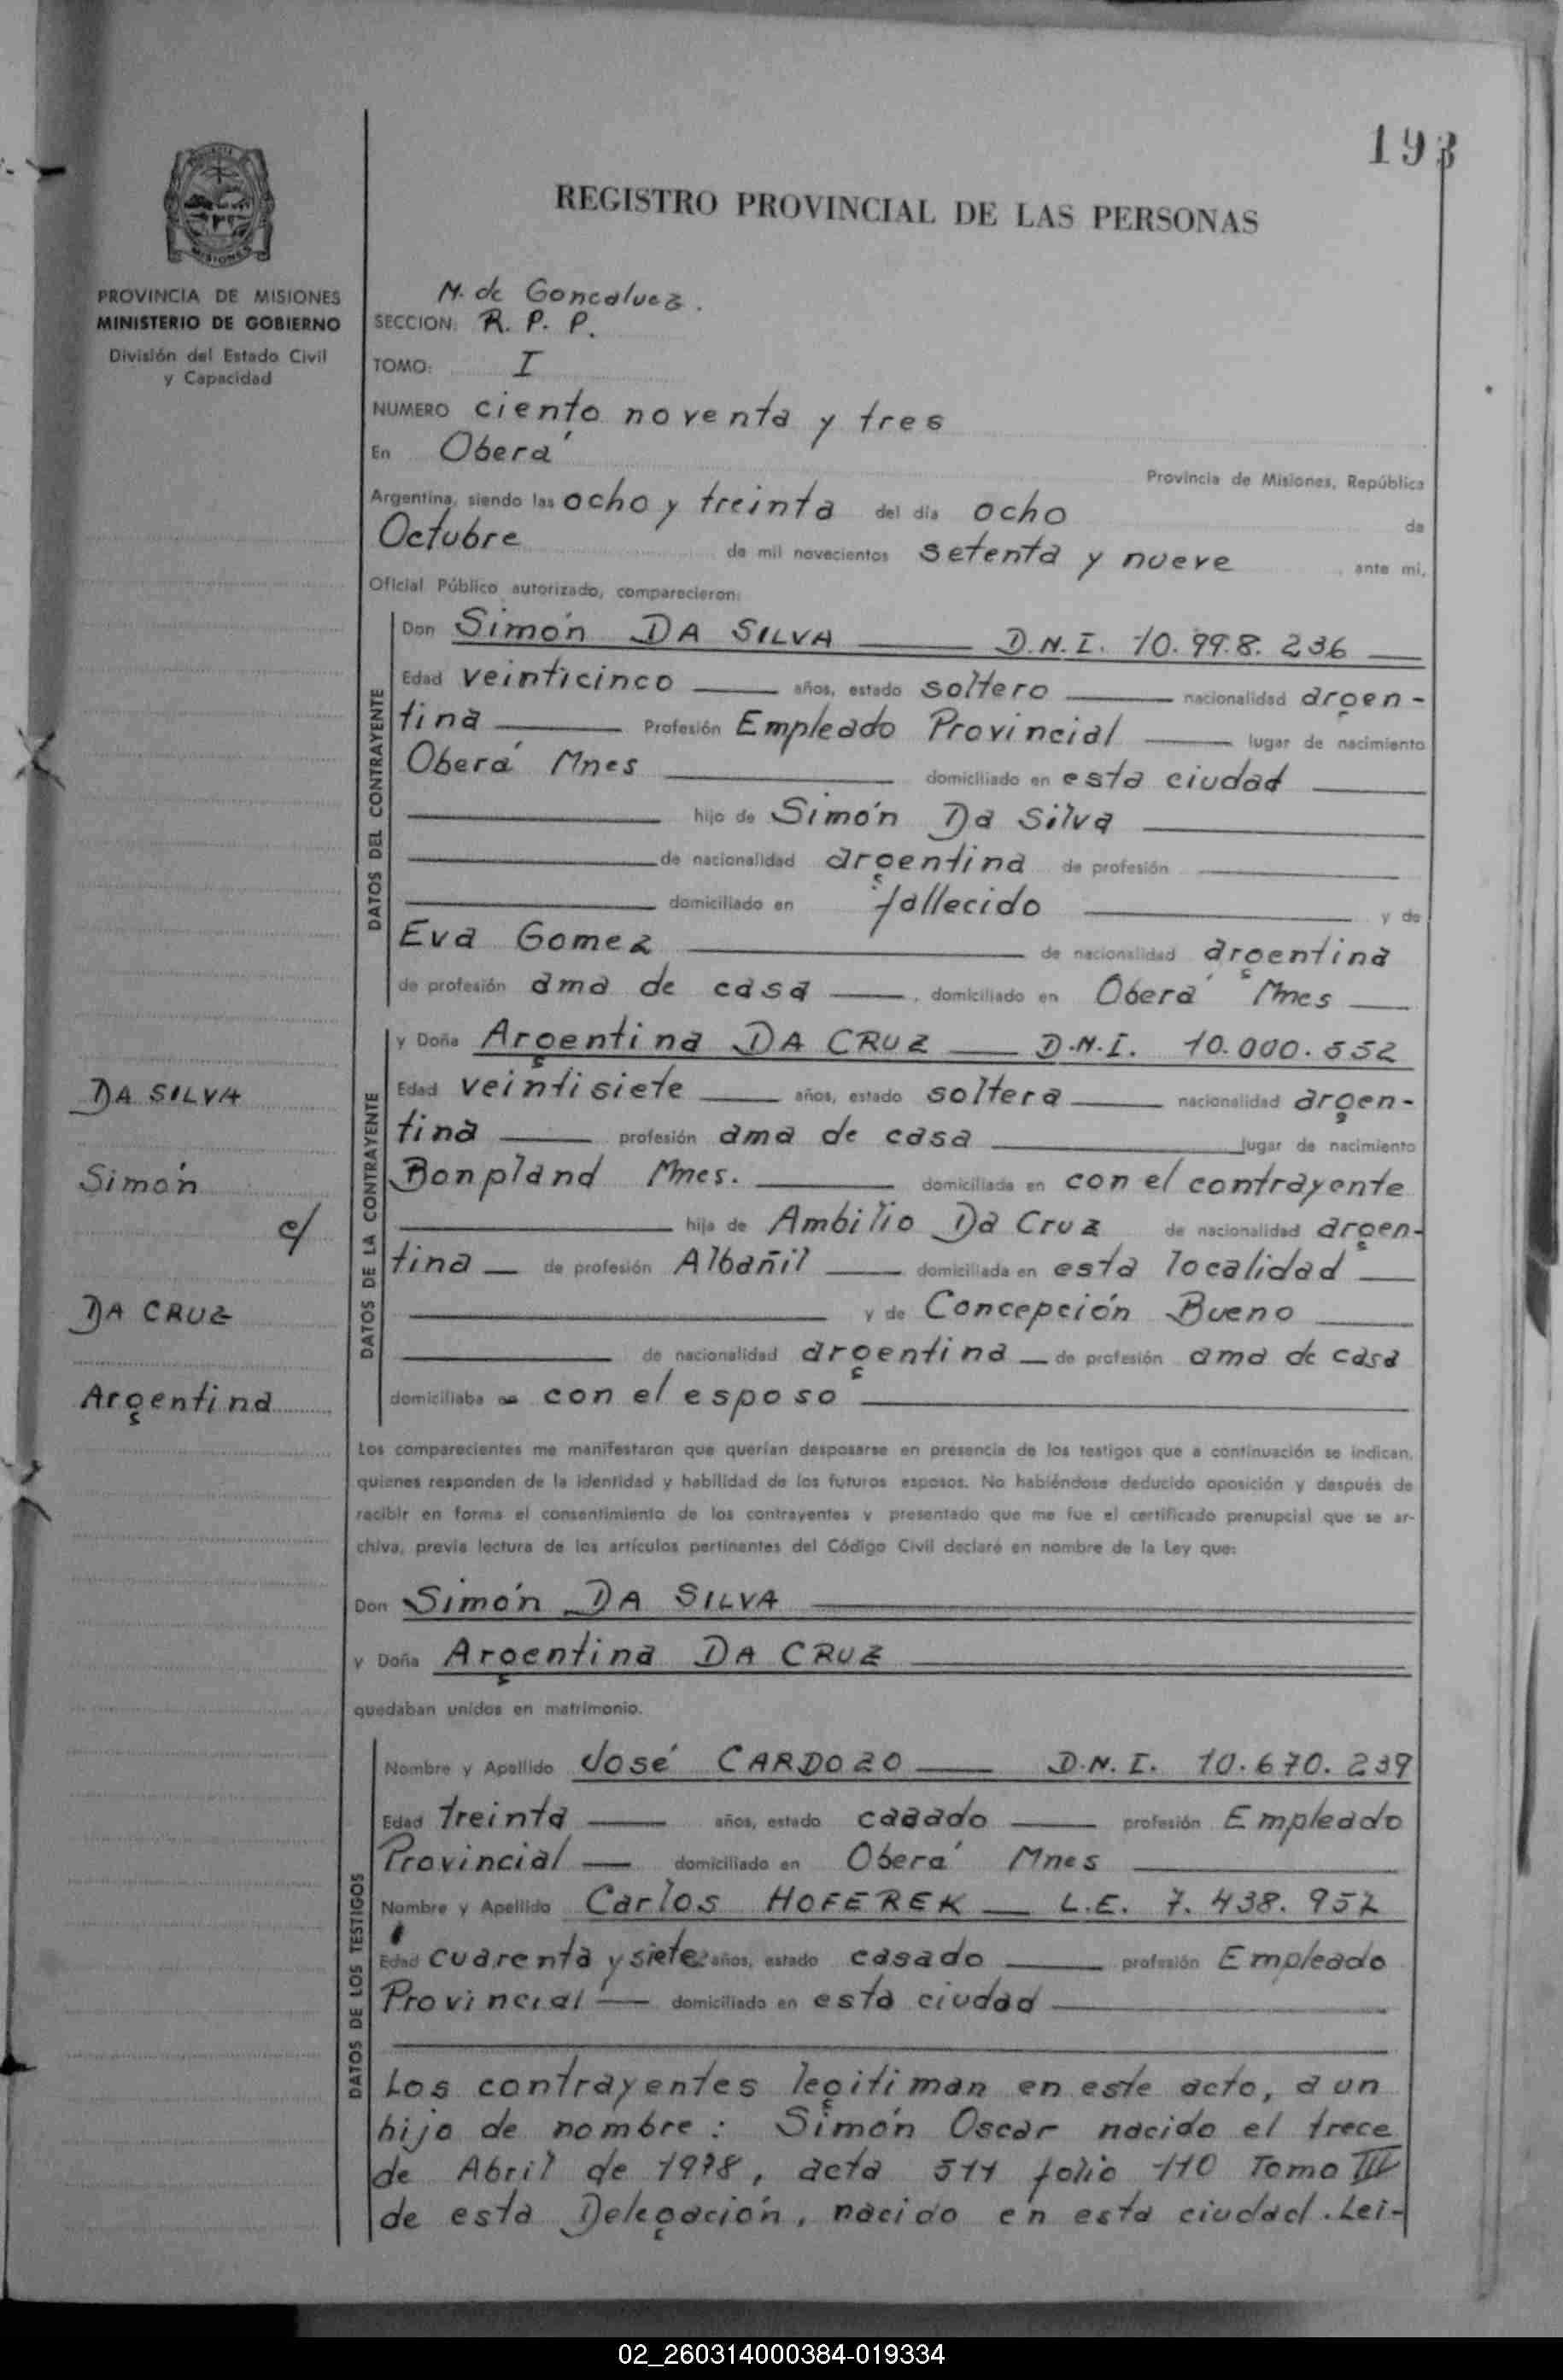 193
REGISTRO PROVINCIAL DE LAS PERSONAS
PROVINCIA DE MISIONES
MINISTERIO DE GOBIERNO
División del Estado Civil
y Capacidad
M. de Goncalvez.
SECCION: R. P. P.
TOMO: I
NUMERO ciento noventa y tres
En Oberá
Provincia de Misiones, República
Argentina, siendo las ocho y treinta del día ocho de
Octubre de mil novecientos setenta y nueve ante mi,
Oficial Público autorizado, comparecieron:
DATOS DEL CONTRAYENTE
Don Simón DA SILVA D.N.I. 10.998.236
Edad veinticinco años, estado soltero nacionalidad argen-
tina Profesión Empleado Provincial lugar de nacimiento
Oberá Mnes domiciliado en esta ciudad
hijo de Simón Da Silva
de nacionalidad argentina de profesión
domiciliado en fallecido y de
Eva Gomez de nacionalidad argentina
de profesión ama de casa, domiciliado en Oberá Mnes
DATOS DE LA CONTRAYENTE
y Doña Argentina DA CRUZ D.N.I. 10.000.552
Edad veintisiete años, estado soltera nacionalidad argen-
tina profesión ama de casa lugar de nacimiento
Bonpland Mnes. domiciliada en con el contrayente
hija de Ambilio Da Cruz de nacionalidad argen-
tina de profesión Albañil domiciliada en esta localidad
y de Concepción Bueno
de nacionalidad argentina de profesión ama de casa
domiciliaba en con el esposo
DA SILVA
Simón
c/
DA CRUZ
Argentina
Los comparecientes me manifestaron que querían desposarse en presencia de los testigos que a continuación se indican,
quienes responden de la identidad y habilidad de los futuros esposos. No habiéndose deducido oposición y después de
recibir en forma el consentimiento de los contrayentes y presentado que me fue el certificado prenupcial que se ar-
chiva, previa lectura de los artículos pertinentes del Código Civil declaré en nombre de la Ley que:
Don Simón DA SILVA
y Doña Argentina DA CRUZ
quedaban unidos en matrimonio.
DATOS DE LOS TESTIGOS
Nombre y Apellido José CARDOZO D.N.I. 10.670.239
Edad treinta años, estado casado profesión Empleado
Provincial domiciliado en Oberá Mnes
Nombre y Apellido Carlos HOFEREK L.E. 7.438.952
Edad cuarenta y siete años, estado casado profesión Empleado
Provincial domiciliado en esta ciudad
Los contrayentes legitiman en este acto, a un
hijo de nombre: Simón Oscar nacido el trece
de Abril de 1978, acta 511 folio 110 Tomo III
de esta Delegación, nacido en esta ciudad. Lei-
02_260314000384-019334